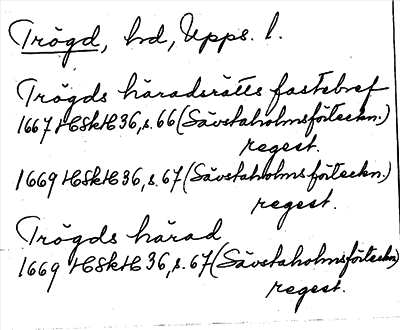 Trögd, hd, Upps. l.
Trögds häradsrätts fastebref
1667 HSkH 36, s. 66 (Säfstaholmsförteckn.)
regest.
1669 HSkH 36, s. 67 (Säfstaholmsförteckn.)
regest.
Trögds härad
1669 HSkH 36, s. 67 (Säfstaholmsförteckn)
regest.